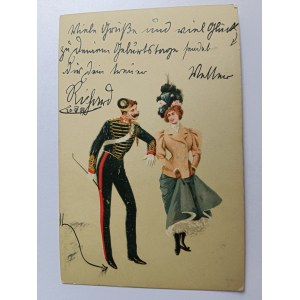 Viele Grüße und viel Glück
zu deinem Geburtstage sendet
dir dein treuer Vetter
Richard